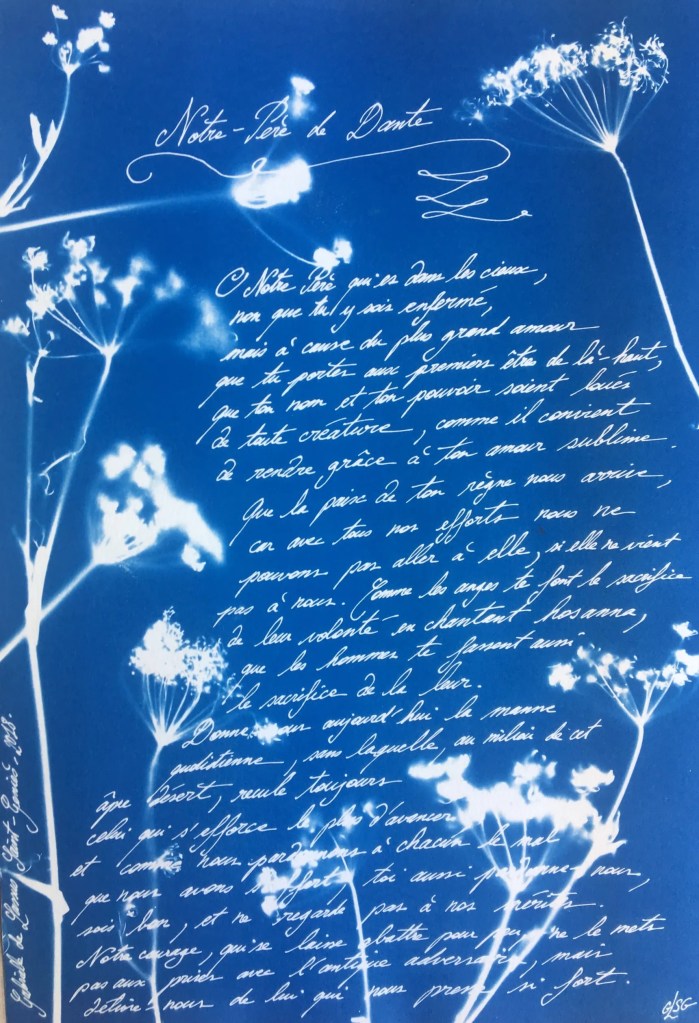 Notre-Père de Dante
O Notre Père qui es dans les cieux,
non que tu y sois enfermé,
mais à cause du plus grand amour
que tu portes aux premiers êtres de là-haut,
que ton nom et ton pouvoir soient loués
de toute créature, comme il convient
de rendre grâce à ton amour sublime.
Que la paix de ton règne nous arrive,
car avec tous nos efforts nous ne
pouvons pas aller à elle, si elle ne vient
pas à nous. Comme les anges te font le sacrifice
de leur volonté en chantant hosanna,
que les hommes te fassent aussi
le sacrifice de la leur.
Donne-nous aujourd'hui la manne
quotidienne, sans laquelle, au milieu de cet
âpre désert, recule toujours
celui qui s'efforce le plus d'avancer
et comme nous pardonnons à chacun le mal
que nous avons souffert, toi aussi pardonne-nous,
sois bon, et ne regarde pas à nos mérites.
Notre courage, qui se laisse abattre pour peu, ne le mets
pas aux prises avec l'antique adversaire, mais
délivre-nous de lui qui nous presse si fort.
GLSG
Gabrielle de Lassus Saint-Geniès - 2018.